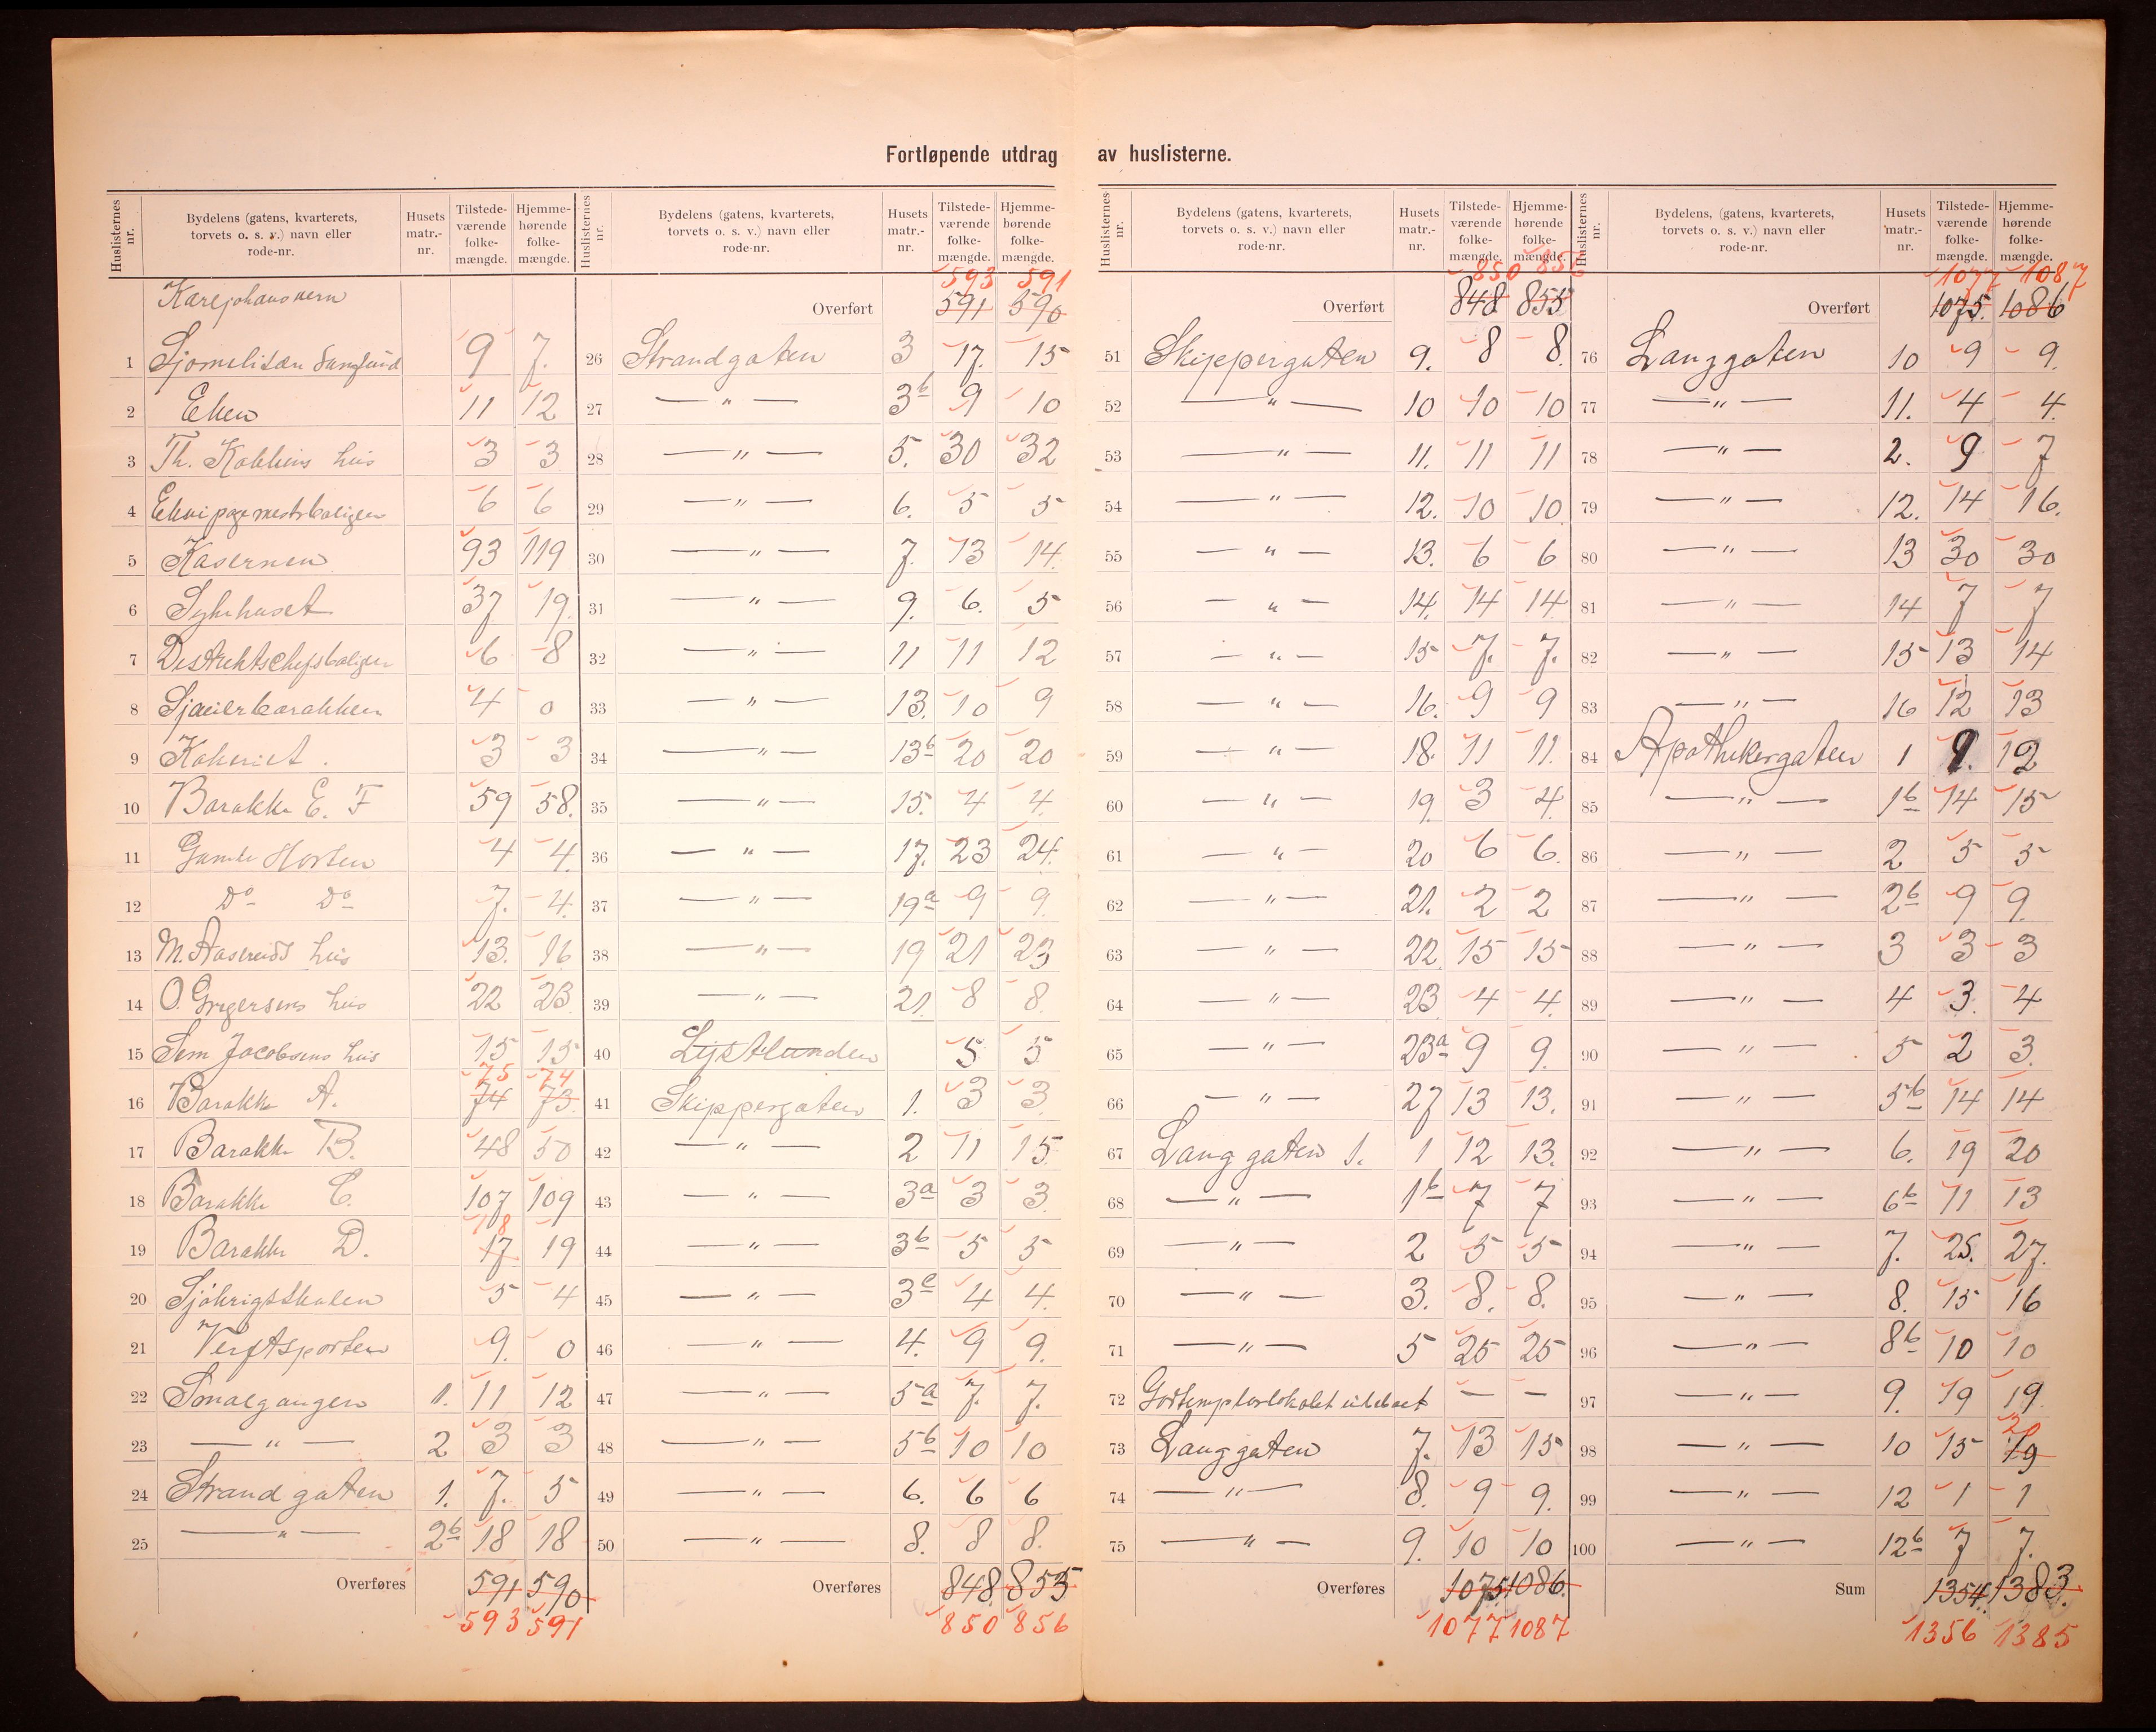 Fortløpende utdrag av huslisterne.
Huslisternes nr. | Bydelens (gatens, kvarterets, torvets o. s. v.) navn eller rode-nr. | Husets matr.-nr. | Tilstede-værende folke-mængde. | Hjemme-hørende folke-mængde.
Karljohansvern
1 9 7.
2 Eken 11 12
3 Th. hus 3 3
4 6 6
5 Kasernen 93 119
6 Sykehuset 37 19.
7 6 8
8 4 0
9 Kokeriet. 3 3
10 Barakke E. F 59 58.
11 Gamle Horten 4 4.
12 Do Do 7. 4.
13 M. hus 13. 16
14 O. hus 22 23
15 Sem Jacobsens hus 15 15
75 74
16 Barakke A. 74 73.
17 Barakke B. 48 50
18 Barakke C. 107 109
18
19 Barakke D. 17 19
20 5 4
21 Verftsporten 9. 0
22 Smalgangen 1. 11 12
23 — " — 2 3 3
24 Strandgaten 1. 7. 5
25 — " — 2b 18 18
Overføres 591 590
593 591
Huslisternes nr. | Bydelens (gatens, kvarterets, torvets o. s. v.) navn eller rode-nr. | Husets matr.-nr. | Tilstede-værende folke-mængde. | Hjemme-hørende folke-mængde.
593 591
Overført 591 590
26 Strandgaten 3 17. 15
27 — " — 3b 9 10
28 — " — 5. 30 32
29 — " — 6. 5 5
30 — " — 7. 13 14.
31 — " — 9. 6. 5
32 — " — 11 11 12
33 — " — 13. 10 9
34 — " — 13b 20 20
35 — " — 15. 4 4.
36 — " — 17. 23 24.
37 — " — 19a 9 9.
38 — " — 19 21 23
39 — " — 21. 8 8.
40 Lystlunden 5 5
41 Skippergaten 1. 3 3.
42 — " — 2 11 15
43 — " — 3a 3 3.
44 — " — 3b 5 5
45 — " — 3c 4 4.
46 — " — 4. 9 9.
47 — " — 5a 7. 7.
48 — " — 5b 10 10
49 — " — 6. 6 6
50 — " — 8. 8 8.
Overføres 848. 855
850 856
Huslisternes nr. | Bydelens (gatens, kvarterets, torvets o. s. v.) navn eller rode-nr. | Husets matr.-nr. | Tilstede-værende folke-mængde. | Hjemme-hørende folke-mængde.
850 856
Overført 848 855
51 Skippergaten 9. 8 8.
52 — " — 10 10 10
53 — " — 11. 11 11
54 — " — 12. 10 10
55 — " — 13. 6 6
56 — " — 14. 14 14
57 — " — 15 7. 7.
58 — " — 16. 9 9
59 — " — 18. 11 11.
60 — " — 19. 3 4.
61 — " — 20 6 6.
62 — " — 21. 2 2
63 — " — 22. 15 15
64 — " — 23 4 4.
65 — " — 23a 9 9.
66 — " — 27 13 13.
67 Langgaten 1. 1 12 13.
68 — " — 1b 7 7
69 — " — 2 5 5
70 — " — 3. 8. 8.
71 — " — 5 25 25
72 Godtemplarlokalet ubeboet — —
73 Langgaten 7. 13 15
74 — " — 8. 9 9.
75 — " — 9. 10 10
Overføres 1075. 1086.
1077 1087
Huslisternes nr. | Bydelens, (gatens, kvarterets, torvets o. s. v.) navn eller rode-nr. | Husets matr.-nr. | Tilstede-værende folke-mængde. | Hjemme-hørende folke-mængde.
1077 1087
Overført 1075. 1086
76 Langgaten 10 9 9.
77 — " — 11. 4 4.
78 — " — 2. 9 7
79 — " — 12. 14 16.
80 — " — 13 30 30
81 — " — 14 7 7
82 — " — 15 13 14
83 — " — 16 12 13
84 Apothekergaten 1 9. 12
85 — " — 1b 14 15
86 — " — 2 5 5
87 — " — 2b 9 9.
88 — " — 3 3 3
89 — " — 4 3. 4
90 — " — 5 2 3.
91 — " — 5b 14 14
92 — " — 6. 19 20
93 — " — 6b 11 13
94 — " — 7. 25. 27.
95 — " — 8. 15 16
96 — " — 8b 10 10
97 — " — 9. 19 19.
20
98 — " — 10 15 19
99 — " — 12 1 1
100 — " — 12b 7 7.
Sum 1354. 1383.
1356 1385